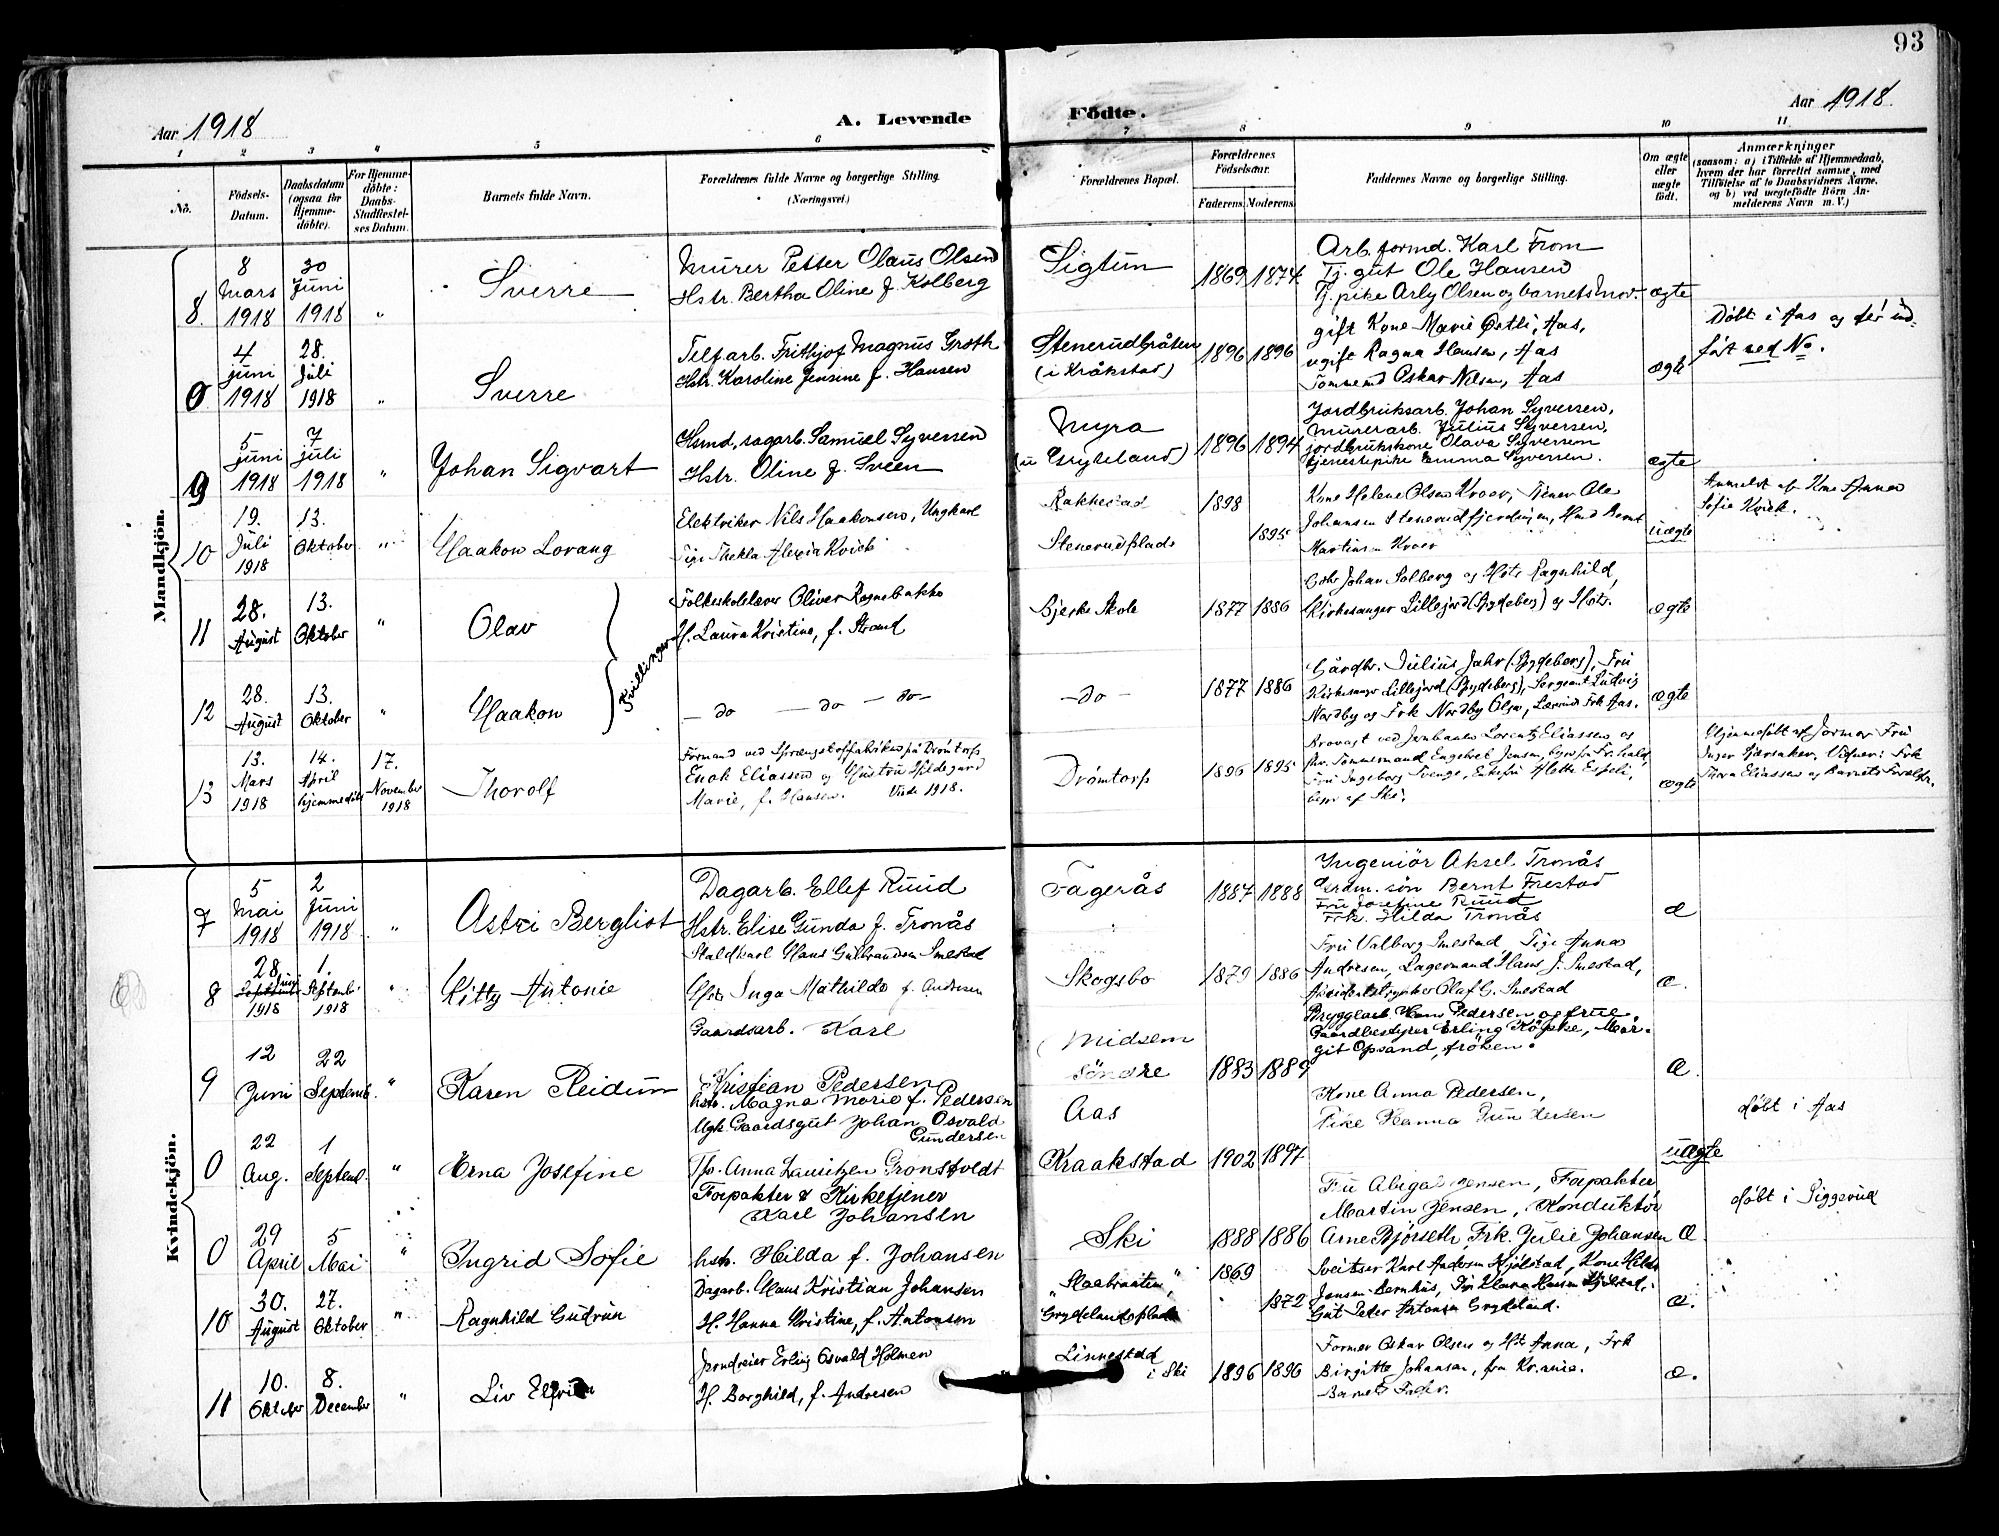 93
Aar 1918
A. Levende
Födte.
Aar 1918
1 2 3 4 5 6 7 8 9 10 11
No.
Födsels-Datum.
Daabsdatum (ogsaa for Hjemme-döbte).
For Hjemme-döbte: Daabs-Stadfæstel-ses Datum.
Barnets fulde Navn.
Forældrenes fulde Navne og borgerlige Stilling.
(Næringsvei.)
Forældrenes Bopæl.
Forældrenes Födselsaar.
Faderens. Moderens.
Faddernes Navne og borgerlige Stilling.
Om ægte eller uægte födt.
Anmærkninger
(saasom: a) i Tilfælde af Hjemmedaab, hvem der har forrettet samme, med Tilföielse af to Daabsvidners Navne, og b) ved uægtefödte Börn An-melderens Navn m. V.)
Mandkjön.
8. 8 Mars 1918 30 Juni 1918 " Sverre
Murer Petter Olaus Olsen
Hstr. Bertha Oline f. Kolberg
Sigtun 1869 1874
Arb. formd. Karl From
Tj. gut Ole Hansen
Tj. pike Arly Olsen og barnets mor. ægte
0 4 juni 1918 28. Juli 1918 " Sverre
Telf arb. Frithjof Magnus Groth
Hstr. Karoline Jensine f. Hansen
Stenerudbråten
(i Kråkstad) 1896 1896
gift Kone Marie Østli, Aas,
ugift Ragna Hansen, Aas
Tømmermd Oskar Nilsen, Aas ægte
Døbt i Aas og før ind-
ført ved No.
9 5 juni 1918 7 juli 1918 " Johan Sigvart
Hsmd, sagarb. Samuel Syversen
Hstr. Oline f. Sveen
Myra
(u Grydeland) 1896 1894
Jordbruksarb. Johan Syversen,
murerarb. Julius Syversen,
jordbrukskone Olava Syversen
tjenestepike Emma Syversen. ægte
10 19. Juli 1918 13. Oktober " Haakon Lovang
Elektriker Nils Haakonsen, Ungkarl
Pige Thekla Alexia Kvick
Rakkestad 1898
Stenerudplads 1895
Kone Helene Olsen Kroer, Tjener Ole
Johansen Stenerudfjerdingen, Hmd Bernt
Martinsen Kroer uægte
Anmeldt af Kone Anna
Sofie Kvick.
11 28. August 13. Oktober " Olav
Tvillinger
Folkeskolelærer Oliver Ragnebakke
H. Laura Kristine, f. Strand
Bjerke Skole 1877 1886
Gbr Johan Solberg og Hstr Ragnhild,
Kirkesanger Lillejord (Rygdeberg) og Hstr. ægte
12 28. August 13. Oktober " Haakon
— do — do — do —
— do — 1877 1886
Gårdbr. Julius Jahr (Rygdeberg), Fru
Kirkesanger Lillejord (Rygdeberg), Sergeant Ludvig
Nordby og Frk Nordby Olsen, Lærerinde Frk Aas. ægte
13 13. Mars 1918 14. April hjemmedøbt 17. November 1918 Thorolf
Formand ved Sprængstoffabriken på Drömtorp
Enok Eliassen og Hustru Hildegard
Marie, f. Hansen. Viede 1918.
Drømtorp 1896 1895
Brovagt ved Jernbanen Lorentz Eliassen og
Fru Ingeborg
bepr af Ski. ægte
Hjemmedøbt af Jormor Fru
Inger Gjersaker. Vidner: Frk
Thora Eliassen og Barnets Forældre.
Kvindekjön.
7 5 Mai 1918 2 Juni 1918 " Astri Bergliot
Dagarb. Ellef Ruud
Hstr. Elise Gunda f. Tronås
Fagerås 1887 1888
Ingeniør Aksel Tronås
Gårdm. søn Bernt Frestad
Fru Josefine Ruud
Frk. Hilda Tronås æ
8 28 juni September 1918 1. Septemb. 1918 " Kitty Antonie
Staldkarl Hans Gulbrandsen Smestad
Hstr Inga Mathilde f. Andresen
Skogsbo 1879 1886
Fru Valborg Smestad, Pige Anna
Andresen, Lagermand Hans J. Smestad,
Accidentstrykker Olaf G. Smestad æ.
9 12 Juni 22 Septemb. " Karen Reidun
Gaardsarb. Karl
Kristian Pedersen
hstr. Magna Marie f. Pedersen
Midsem
søndre 1883 1889
Aas
Bryggarb. Hans Pedersen og frue.
Gaardbestyrer Erling Köpke, Mar-
git Opsand, frøken. æ.
0 22 Aug. 1 Septemb. " Erna Josefine
Ugk. Gaardsgut Johan Osvald
Gundersen
Tp. Anna Lauritzen Gronstvedt
Kraakstad 1902 1897
Kone Anna Pedersen,
Pike Hanna Gundersen uægte
døbt i Aas
0 29 April 5 Mai " Ingrid Sofie
Forpakter & Kirketjener
Karl Johansen
hstr. Hilda f. Johansen
Ski 1888 1886
Fru Abigael Jensen, Forpakter
Martin Jensen, Konduktør
Arne Bjørseth, Frk. Julie Johansen Æ
døbt i Siggerud
10 30. August 27. Oktober " Ragnhild Gudrun
Dagarb. Hans Kristian Johansen
H. Hanna Kristine, f. Antonsen
"Haabraaten"
Grydelandsplads 1869 1872
Sveitser Karl Andersen Kjølstad, Kone Hilda
Jensen Bernhus, Pige Klara Hansen Kjølstad,
Gut Peter Antonsen Grydeland. æ.
11 10. Oktober 8. December " Liv
Erling Osvald Holmen
H. Borghild, f. Andresen
Linnestad
i Ski 1896 1896
Former Oskar Olsen og Hst Anna, Frk
Birgitte Johansen, fra Kr.ania.
Barnets Fader. æ.